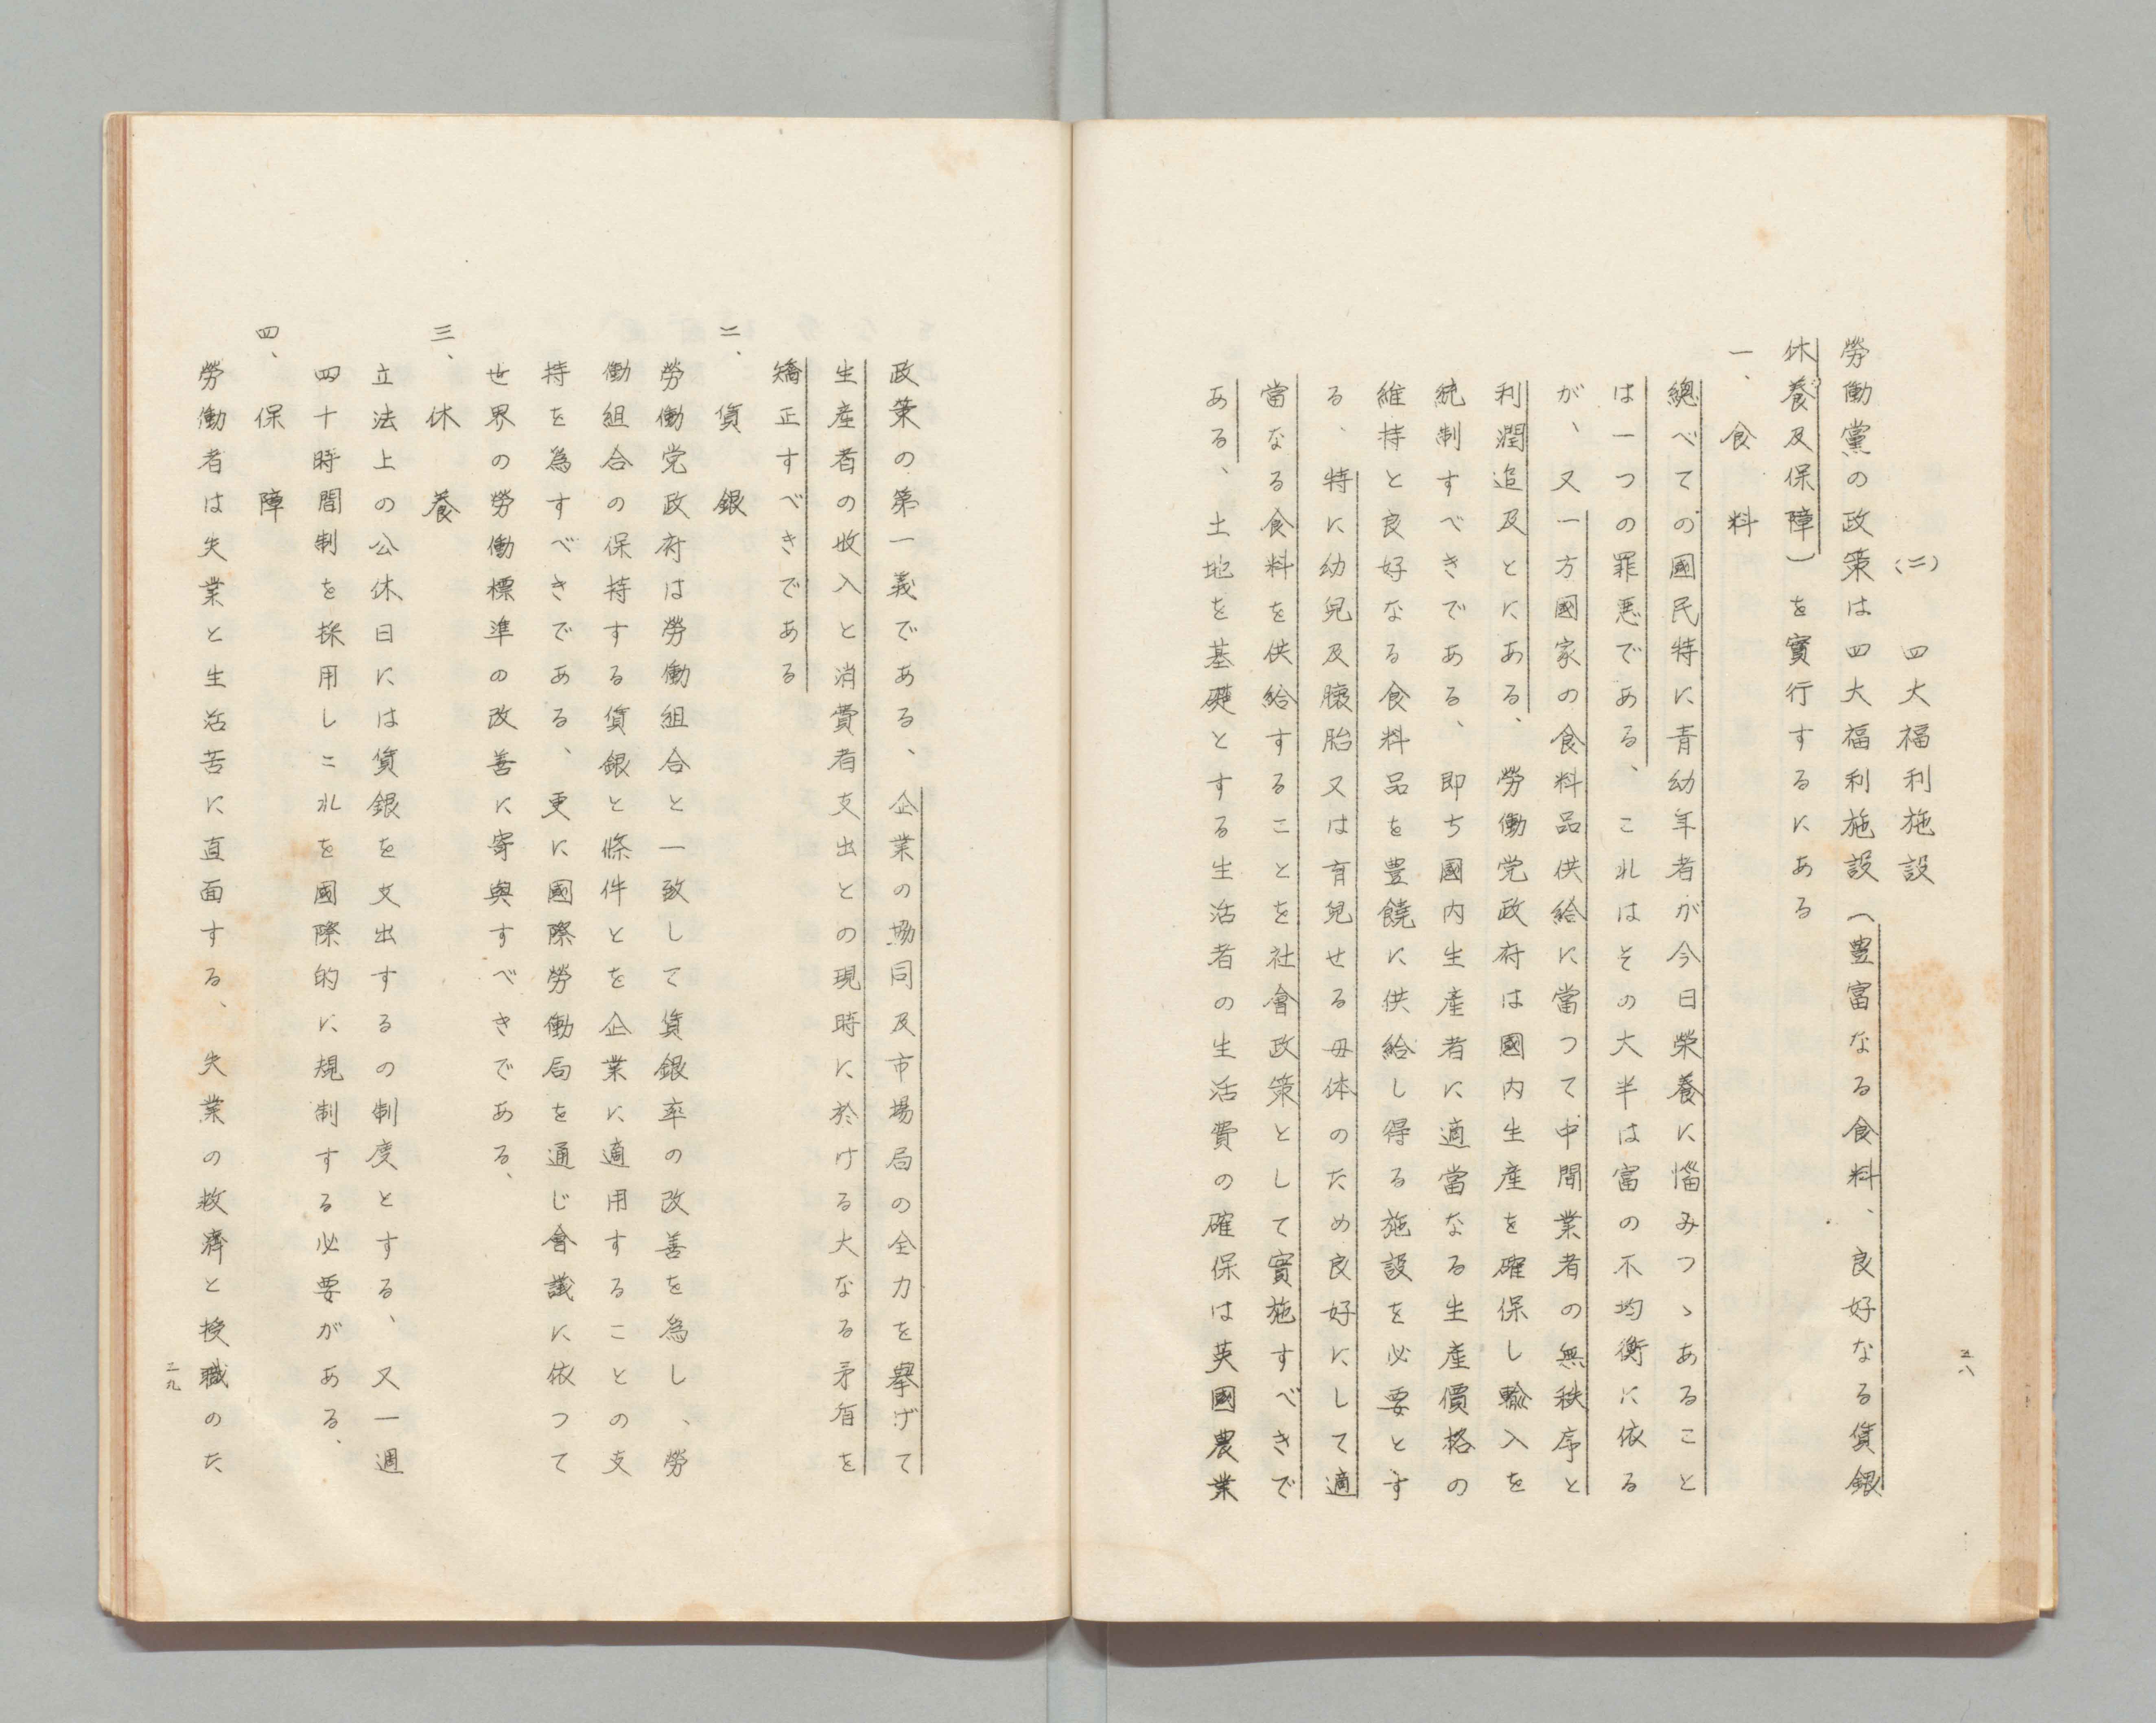 (二)　四大福利施設
勞働黨の政策は四大福利施設（豊富なる食料、良好なる賃銀
休養及保障）を實行するにある
一、食料
總べての國民特に青幼年者が今日榮養に惱みつゝあること
は一つの罪悪である、これはその大半は富の不均衡に依る
が、又一方國家の食料品供給に當つて中間業者の無秩序と
利潤追及とにある、勞働党政府は國内生産を確保し輸入を
統制すべきである、即ち國内生産者に適當なる生産價格の
維持と良好なる食料品を豊饒に供給し得る施設を必要とす
る、特に幼兒及膁胎又は育兒せる母体のため良好にして適
當なる食料を供給することを社會政策として實施すべきで
ある、土地を基礎とする生活者の生活費の確保は英國農業
二八
政策の第一義である、企業の協同及市場局の全力を擧げて
生産者の收入と消費者支出との現時に於ける大なる矛盾を
矯正すべきである
二、賃銀
勞働党政府は勞働組合と一致して賃銀率の改善を為し、勞
働組合の保持する賃銀と條件とを企業に適用することの支
持を為すべきである、更に國際勞働局を通じ會議に依つて
世界の勞働標準の改善に寄與すべきである、
三、休養
立法上の公休日には賃銀を支出するの制度とする、又一週
四十時間制を採用しこれを國際的に規制する必要がある、
四、保障
勞働者は失業と生活苦に直面する、失業の救濟と授職のた
二九